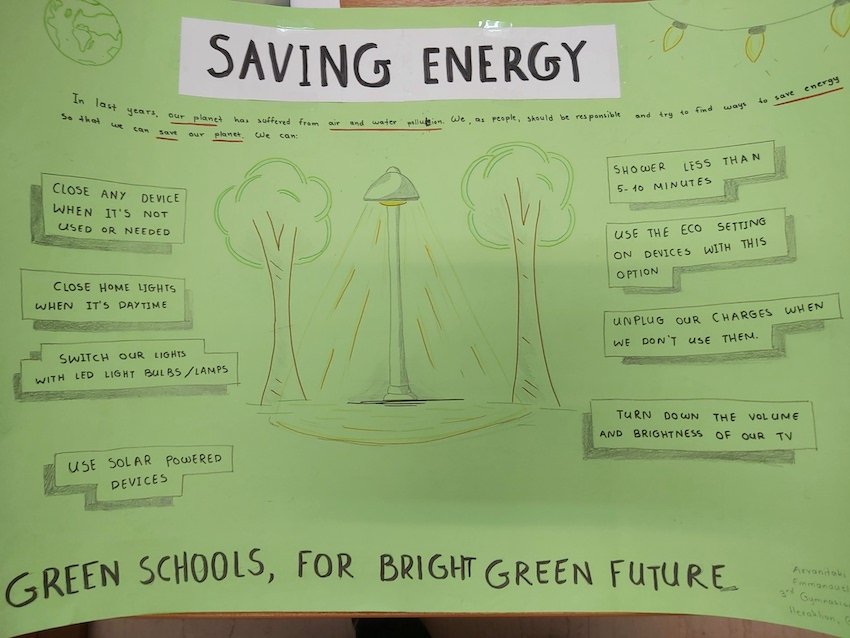 SAVING ENERGY
In last years, our planet has suffered from air and water pollution. We, as people, should be responsible and try to find ways to save energy
so that we can save our planet. We can:
CLOSE ANY DEVICE
WHEN IT'S NOT
USED OR NEEDED
CLOSE HOME LIGHTS
WHEN IT'S DAYTIME
SWITCH OUR LIGHTS
WITH LED LIGHT BULBS/LAMPS
USE SOLAR POWERED
DEVICES
SHOWER LESS THAN
5-10 MINUTES
USE THE ECO SETTING
ON DEVICES WITH THIS
OPTION
UNPLUG OUR CHARGES WHEN
WE DON'T USE THEM.
TURN DOWN THE VOLUME
AND BRIGHTNESS OF OUR TV
GREEN SCHOOLS, FOR BRIGHT GREEN FUTURE
3rd